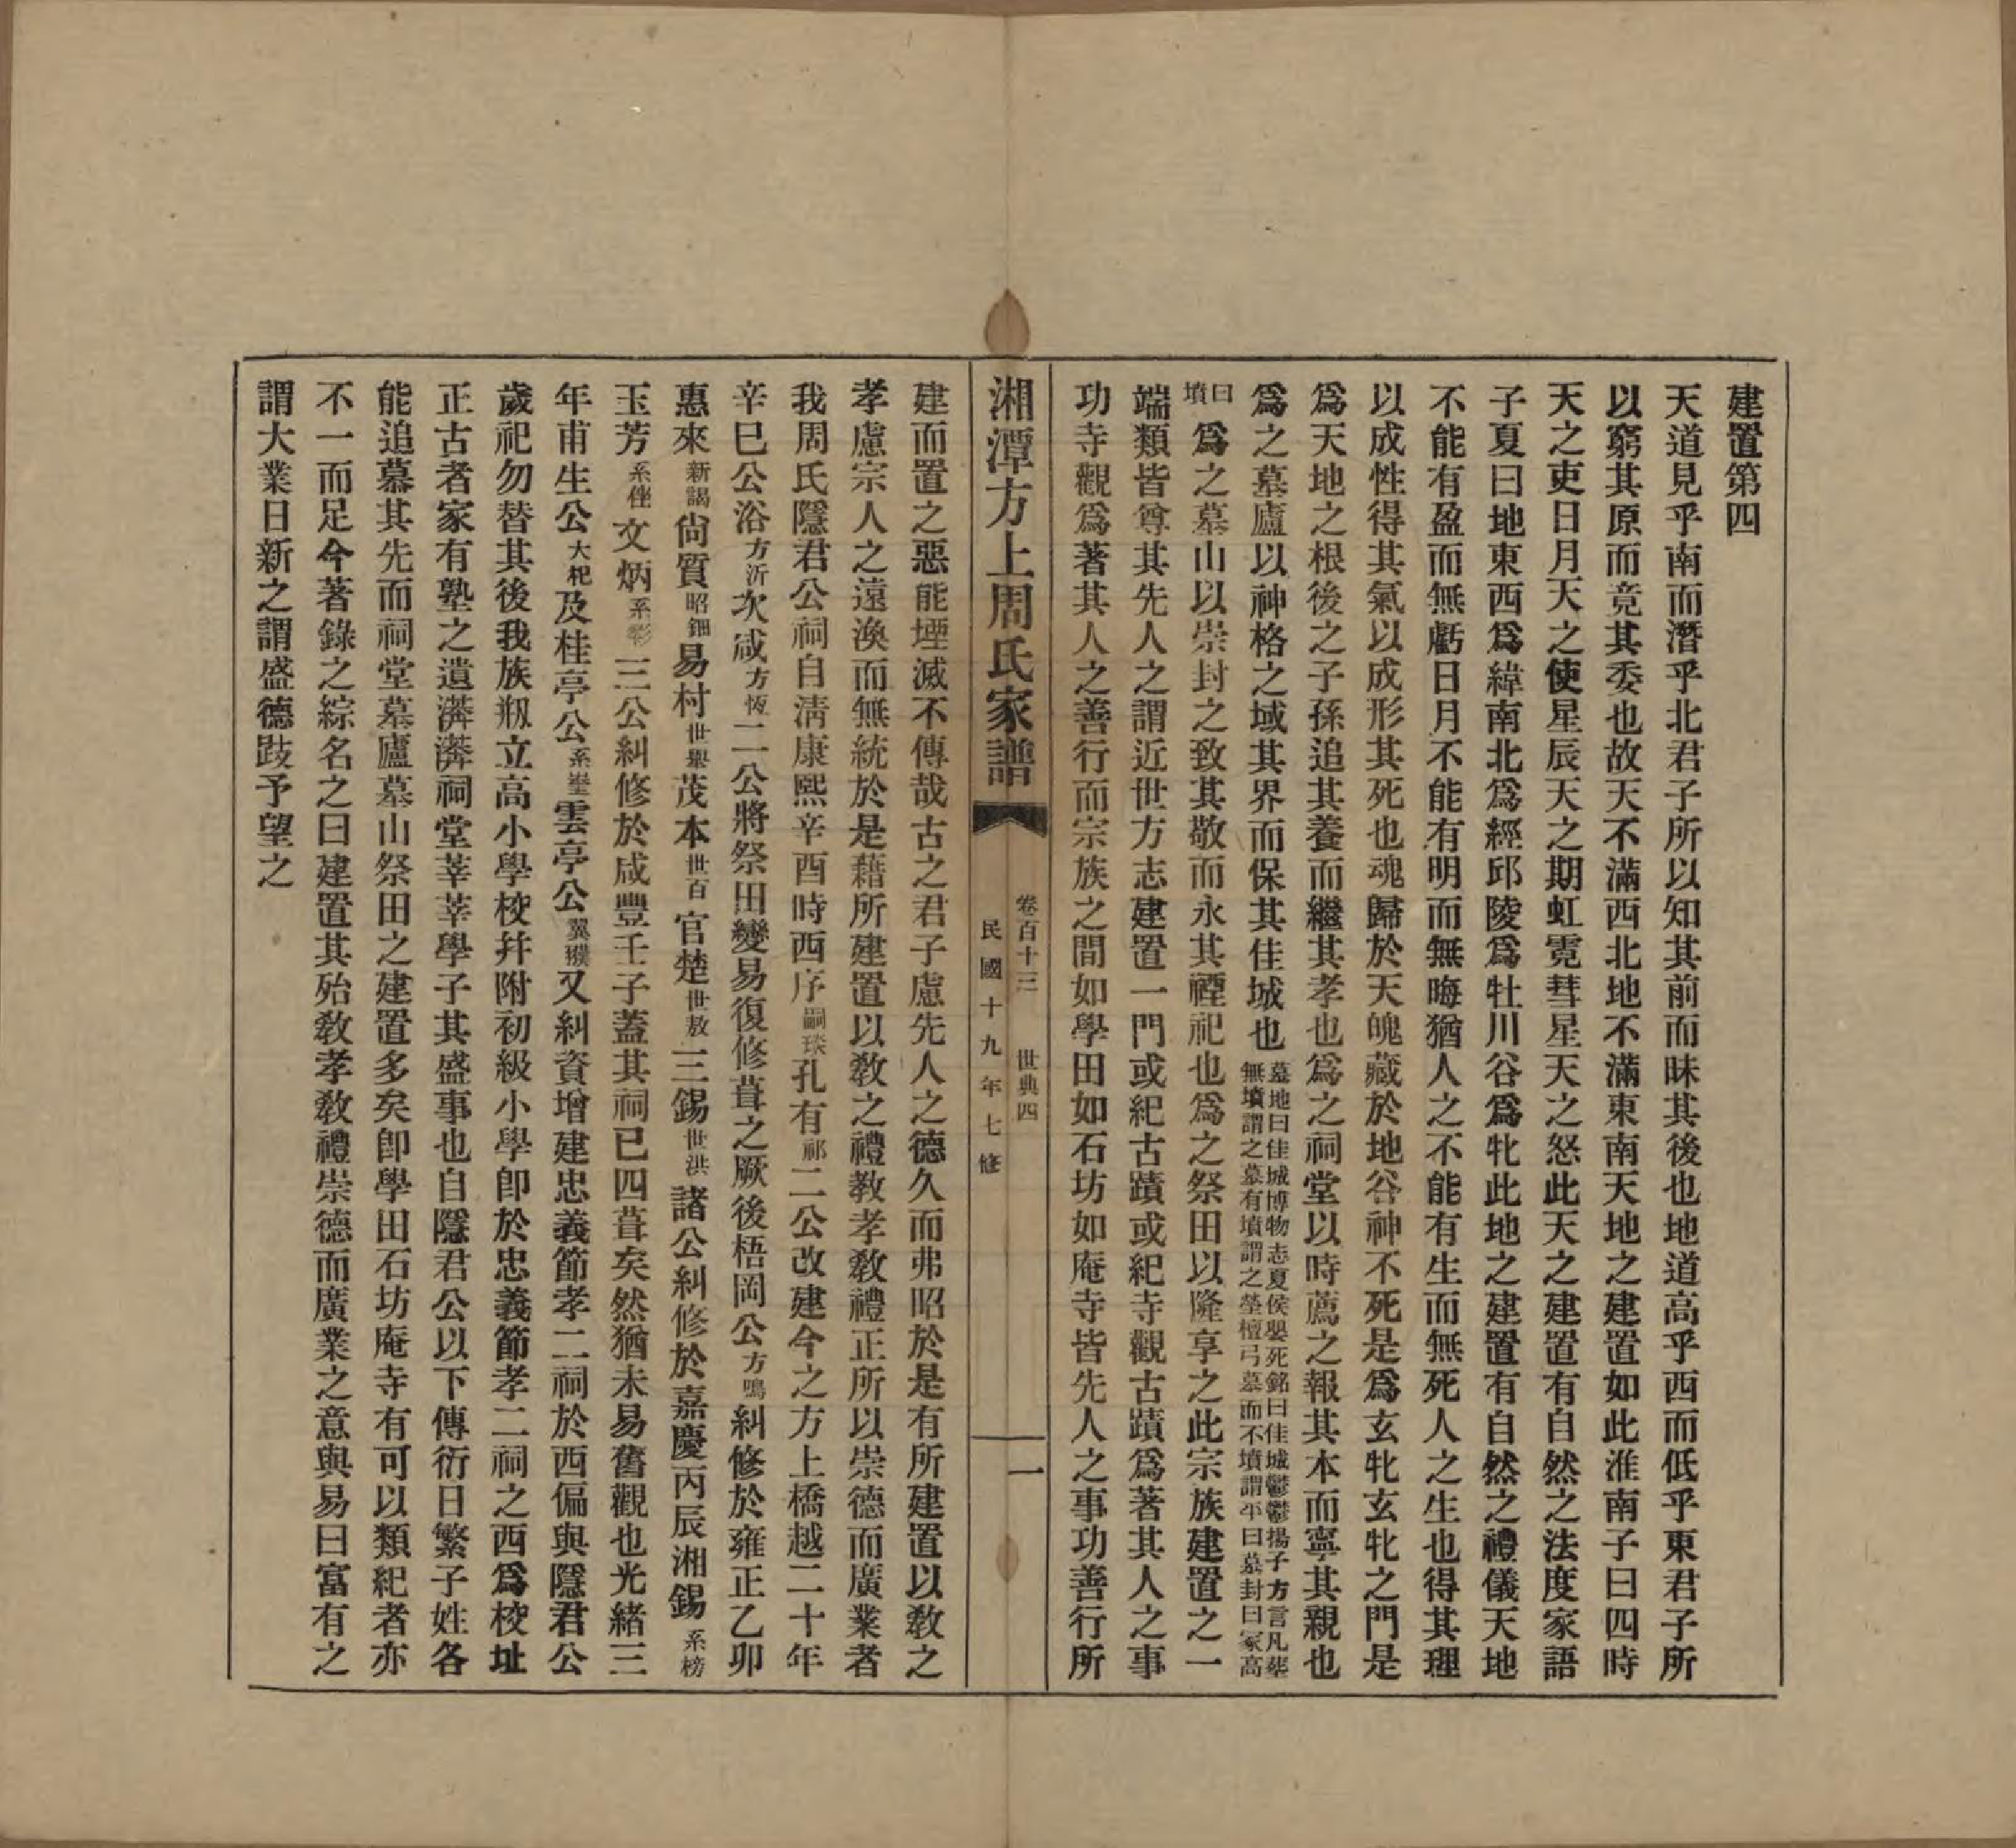 建置第四
天道見乎南而潛乎北君子所以知其前而昧其後也地道高乎西而低乎東君子所
以窮其原而竟其委也故天不滿西北地不滿東南天地之建置如此淮南子曰四時
天之吏日月天之使星辰天之期虹霓彗星天之怒此天之建置有自然之法度家語
子夏曰地東西爲緯南北爲經邱陵爲牡川谷爲牝此地之建置有自然之禮儀天地
不能有盈而無虧日月不能有明而無晦猶人之不能有生而無死人之生也得其理
以成性得其氣以成形其死也魂歸於天魄藏於地谷神不死是爲玄牝玄牝之門是
爲天地之根後之子孫追其養而繼其孝也爲之祠堂以時薦之報其本而寧其親也
爲之墓廬以神格之域其界而保其佳城也墓地曰佳城博物志夏侯嬰死銘曰佳城鬱鬱揚子方言凡葬無墳謂之墓有墳謂之塋檀弓墓而不墳謂平曰墓封曰冢高
曰墳爲之墓山以崇封之致其敬而永其禋祀也爲之祭田以隆享之此宗族建置之一
端類皆尊其先人之謂近世方志建置一門或紀古蹟或紀寺觀古蹟爲著其人之事
功寺觀爲著其人之善行而宗族之間如學田如石坊如庵寺皆先人之事功善行所
湘潭方上周氏家譜
卷百十三 世典四
民國十九年七修
一
建而置之惡能堙滅不傳哉古之君子慮先人之德久而弗昭於是有所建置以敎之
孝慮宗人之遠渙而無統於是藉所建置以敎之禮敎孝敎禮正所以崇德而廣業者
我周氏隱君公祠自清康熙辛酉時西序嗣琰孔有祁二公改建今之方上橋越二十年
辛巳公浴方沂次咸方恆二公將祭田變易復修葺之厥後梧岡公方鳴糾修於雍正乙卯
惠來新謁尙質昭鈿易村世舉茂本世百官楚世敖三錫世洪諸公糾修於嘉慶丙辰湘錫系榜
玉芳系文炳系彰三公糾修於咸豐壬子蓋其祠已四葺矣然猶未易舊觀也光緒三
年甫生公大杞及桂亭公系雲亭公翼又糾資增建忠義節孝二祠於西偏與隱君公
歲祀勿替其後我族剏立高小學校幷附初級小學卽於忠義節孝二祠之西爲校址
正古者家有塾之遺濟濟祠堂莘莘學子其盛事也自隱君公以下傳衍日繁子姓各
能追慕其先而祠堂墓廬墓山祭田之建置多矣卽學田石坊庵寺有可以類紀者亦
不一而足今著錄之綜名之曰建置其殆敎孝敎禮崇德而廣業之意與易曰富有之
謂大業日新之謂盛德跂予望之